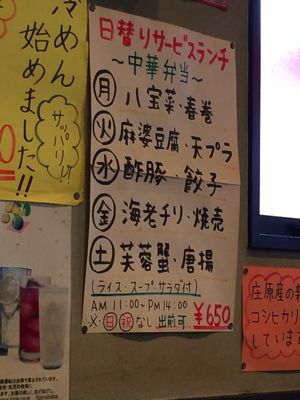 冷めん
始めました!!
サッパリ!!
日替りサービスランチ
～中華弁当～
月 八宝菜・春巻
火 麻婆豆腐・天プラ
水 酢豚・餃子
金 海老チリ・焼売
土 芙蓉蟹・唐揚
(ライス・スープ・サラダ付)
AM 11:00～PM 14:00
※・日祝なし 出前可 ¥650
庄原産の
コシヒカリ
しています